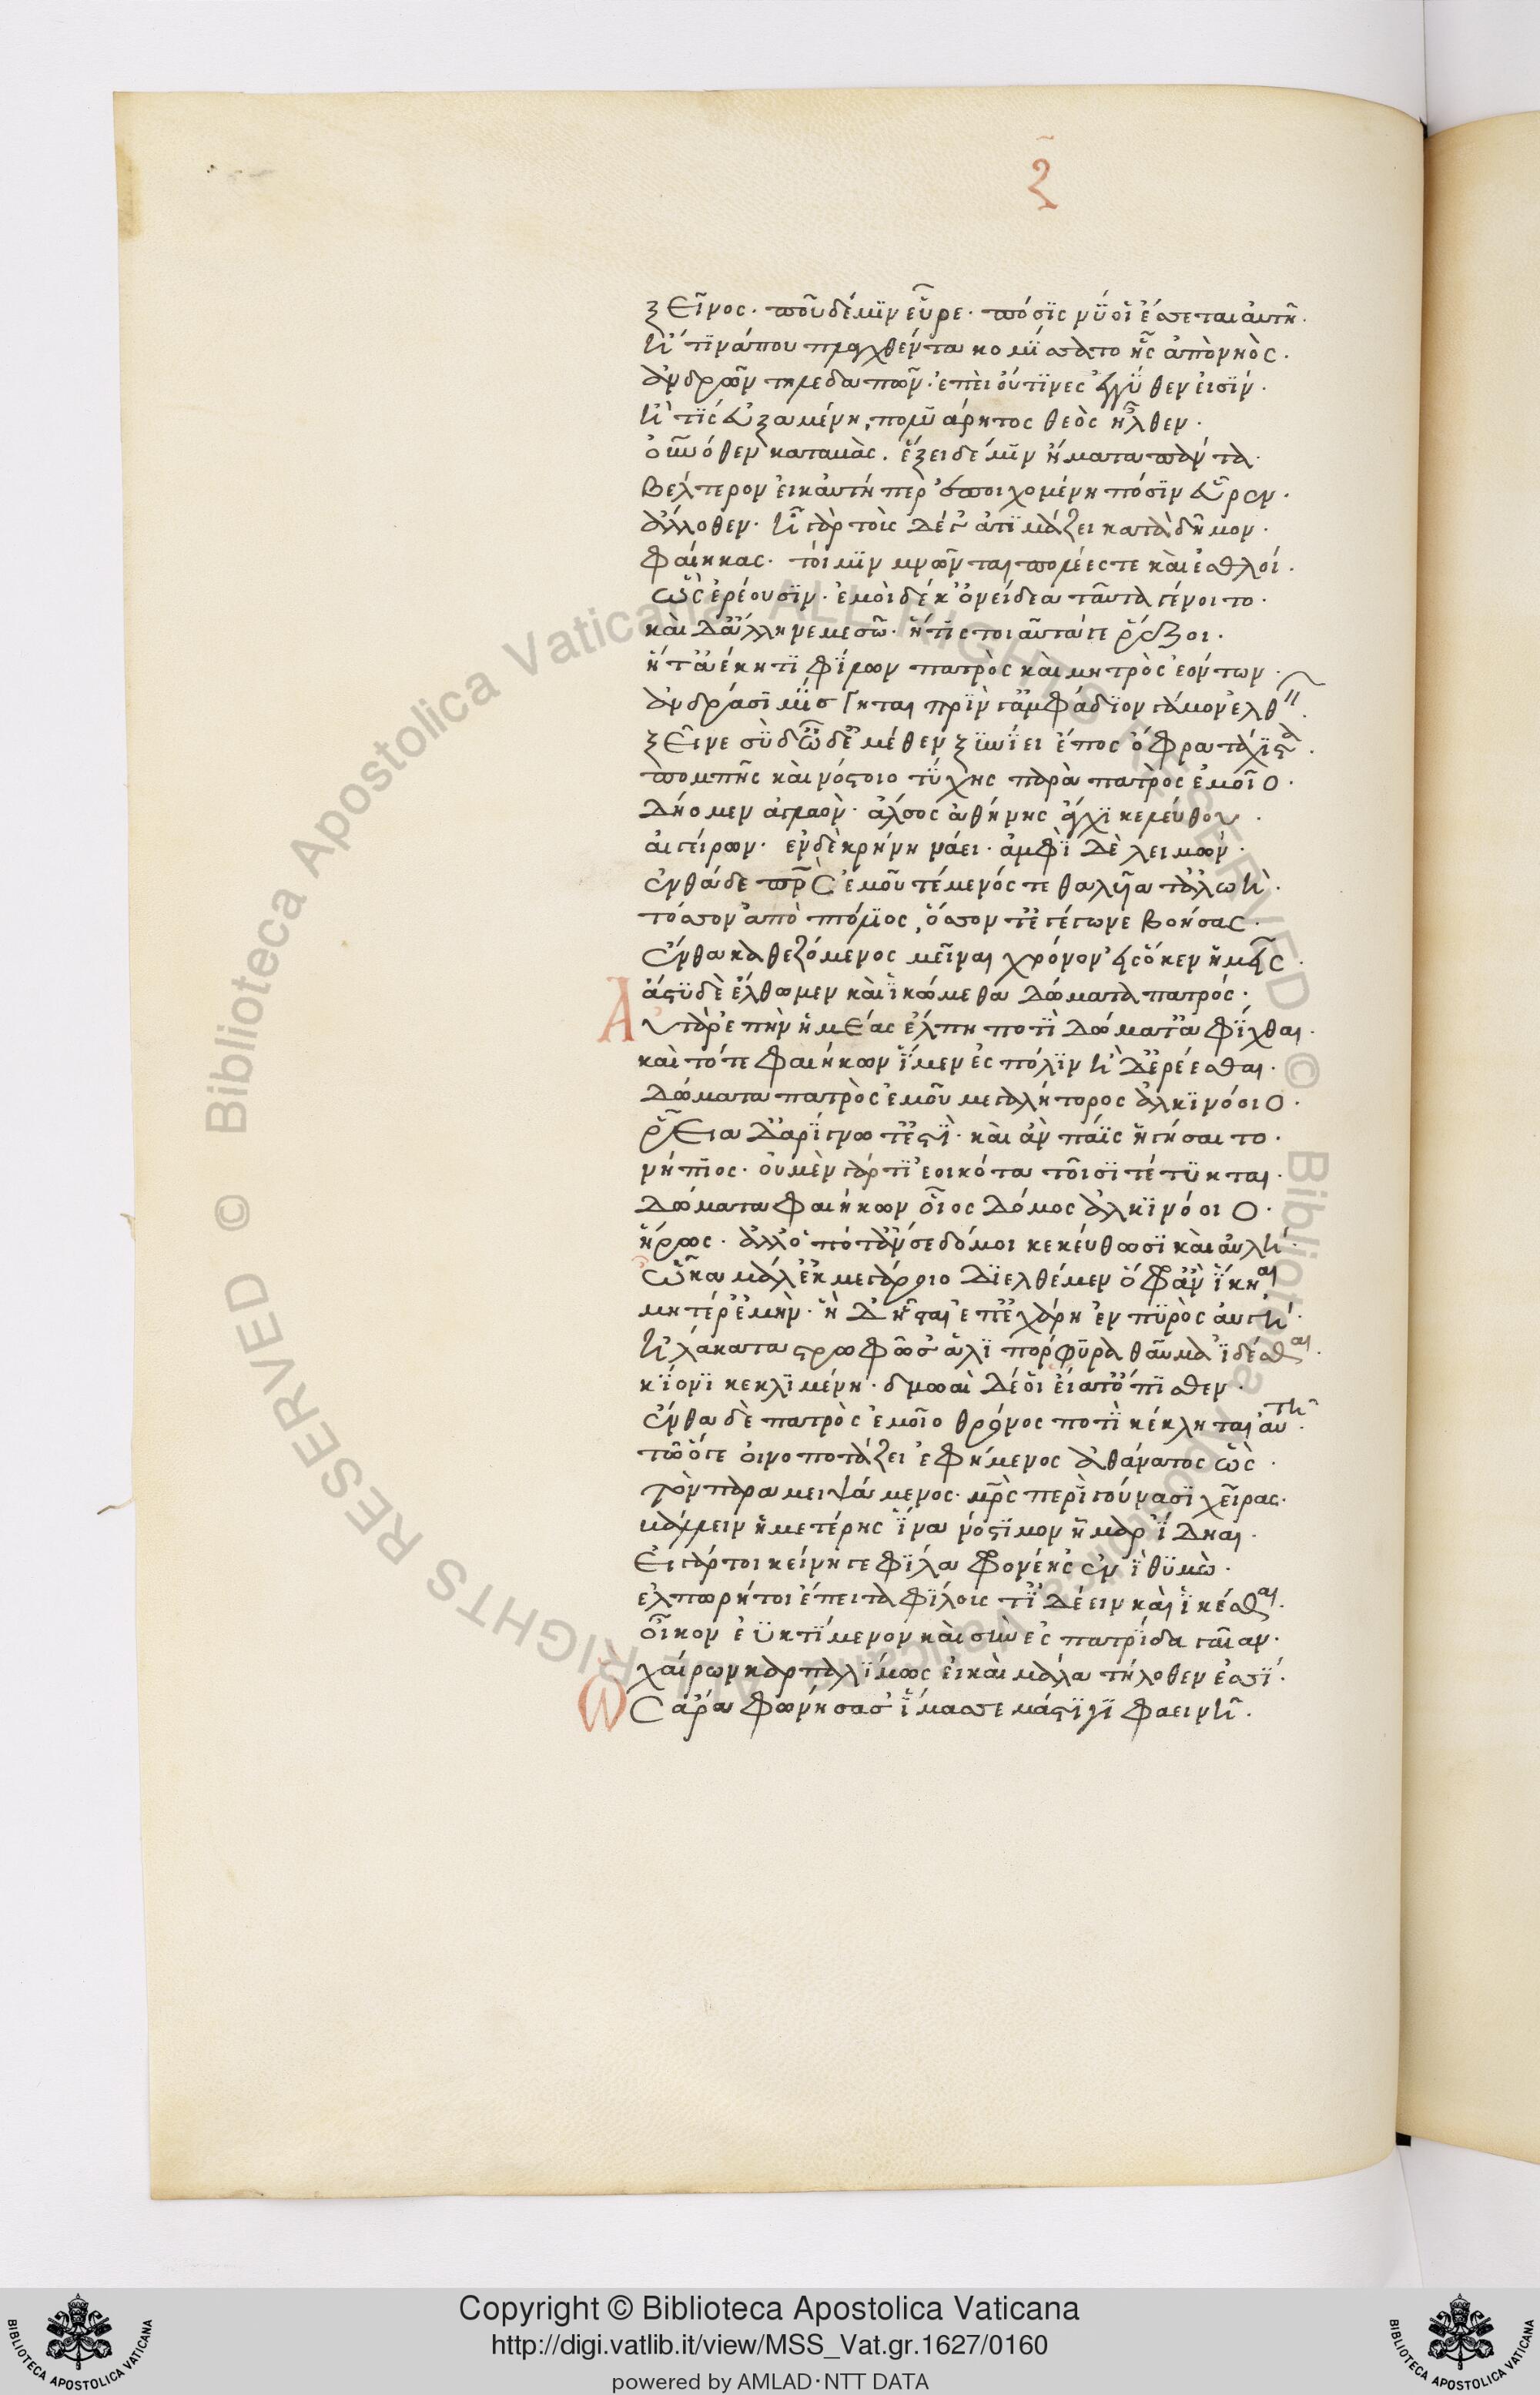 ζ
ξεῖνος. ποῦ δέ μιν εὗρε. πόσις νύ οἱ ἔσσεται αὐτῆ.
ἤ τινά που πλαγχθέντα κομίσσατο ἧς ἀπὸ νηὸς.
ἀνδρῶν τηλεδαπῶν. ἐπεὶ οὔτινες ἐγγύθεν εἰσίν.
ἤ τίς εὐξαμένη, πολυάρητος θεὸς ἦλθεν.
οὐνόθεν καταβὰς. ἕξει δέ μιν ἤματα πάντα.
βέλτερον εἰ καὐτή περ ἐποιχομένη πόσιν εὗρεν.
ἄλλοθεν. ἦ γὰρ τοὺς δέ γ' ἀτιμάζει κατὰ δῆμον.
φαίηκας. τοί μιν μνῶνται πολέες τε καὶ ἐσθλοί.
ὣς ἐρέουσιν. ἐμοὶ δέ κ' ὀνείδεα ταῦτα γένοιτο.
καὶ δ' ἄλλη νεμεσῶ. ἥτις τοιαῦτά γε ῥέζοι.
ἥ τ' ἀέκητι φίλων πατρὸς καὶ μητρὸς ἐόντων.
ἀνδράσι μίσγηται πρίν γ' ἀμφάδιον γάμον ἐλθεῖν.
ξεῖνε σὺ δ' ὧδ' ἐμέθεν ξυνίει ἔπος ὄφρα τάχιστα.
πομπῆς καὶ νόστοιο τύχης παρὰ πατρὸς ἐμοῖο.
δήομεν ἀγλαὸν. ἄλσος ἀθήνης ἄγχι κελεύθου.
αἰγείρων. ἐν δὲ κρήνη νάει. ἀμφὶ δὲ λειμών.
ἔνθα δε πρς ἐμοῦ τέμενός τε θαλῆα τ' ἀλωή.
τόσσον ἀπὸ πτόλιος, ὅσσον τε γέγωνε βοήσας.
ἔνθα καθεζόμενος μεῖναι χρόνον εἰς ὅκεν ἡμεῖς.
ἄστυ δὲ ἔλθωμεν καὶ ἱκώμεθα δώματα πατρός.
Αὐτὰρ ἐπὴν ἡμέας ἔλπη ποτὶ δώματ' ἀφίχθαι.
καὶ τότε φαιήκων ἴμεν ἐς πόλιν ἠδ' ἐρέεσθαι.
δώματα πατρὸς ἐμοῦ μεγαλήτορος ἀλκινόοιο.
ῥεῖα δ' ἀρίγνωτ' ἐστὶ. καὶ ἂν πάϊς ἡγήσαιτο.
νήπιος. οὐ μὲν γάρ τι ἐοικότα τοῖσι τέτυκται.
δώματα φαιήκων οἷος δόμος ἀλκινόοιο.
ἥρωος. ἀλλ' ὁπότ' ἄν σε δόμοι κεκεύθωσι καὶ αὐλή.
ὦκα μάλ' ἐκ μεγάροιο διελθέμεν ὄφρ' ἂν ἵκηαι
μητέρ' ἐμὴν. ἡ δ' ἧσται ἐπ' ἐσχάρη ἐν πυρὸς αὐγῆ.
ἠλάκατα στρωφῶσ' ἁλιπόρφυρα θαῦμα ἰδέσθαι.
κίονι κεκλιμένη. δμωαὶ δέ οἱ εἵατ' ὄπισθεν.
ἔνθα δὲ πατρὸς ἐμοῖο θρόνος ποτὶ κέκληται αὐτῆ.
τῶ ὅγε οἰνοποτάζει ἐφήμενος ἀθάνατος ὣς.
τὸν παραμειψάμενος. μρς περὶ γούνασι χεῖρας.
βάλλειν ἡμετέρης ἵνα νόστιμον ἦμαρ ἴδηαι.
εἴ γάρ τοι κείνη γε φίλα φρονέησ' ἐνὶ θυμῶ.
ἐλπωρή τοι ἔπειτα φίλους τ' ἰδέειν καὶ ἱκέσθαι.
οἶκον ἐϋκτίμενον καὶ σὴν ἐς πατρίδα γαῖαν.
χαίρων καρπαλίμως εἰ καὶ μάλα τήλοθεν ἐσσί.
Ὣς ἄρα φωνήσασ' ἵμασσε μάστιγι φαεινῆ.
Copyright © Biblioteca Apostolica Vaticana
http://digi.vatlib.it/view/MSS_Vat.gr.1627/0160
powered by AMLAD·NTT DATA